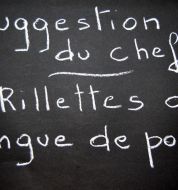 uggestion
du chef
Rillettes d
ngue de po